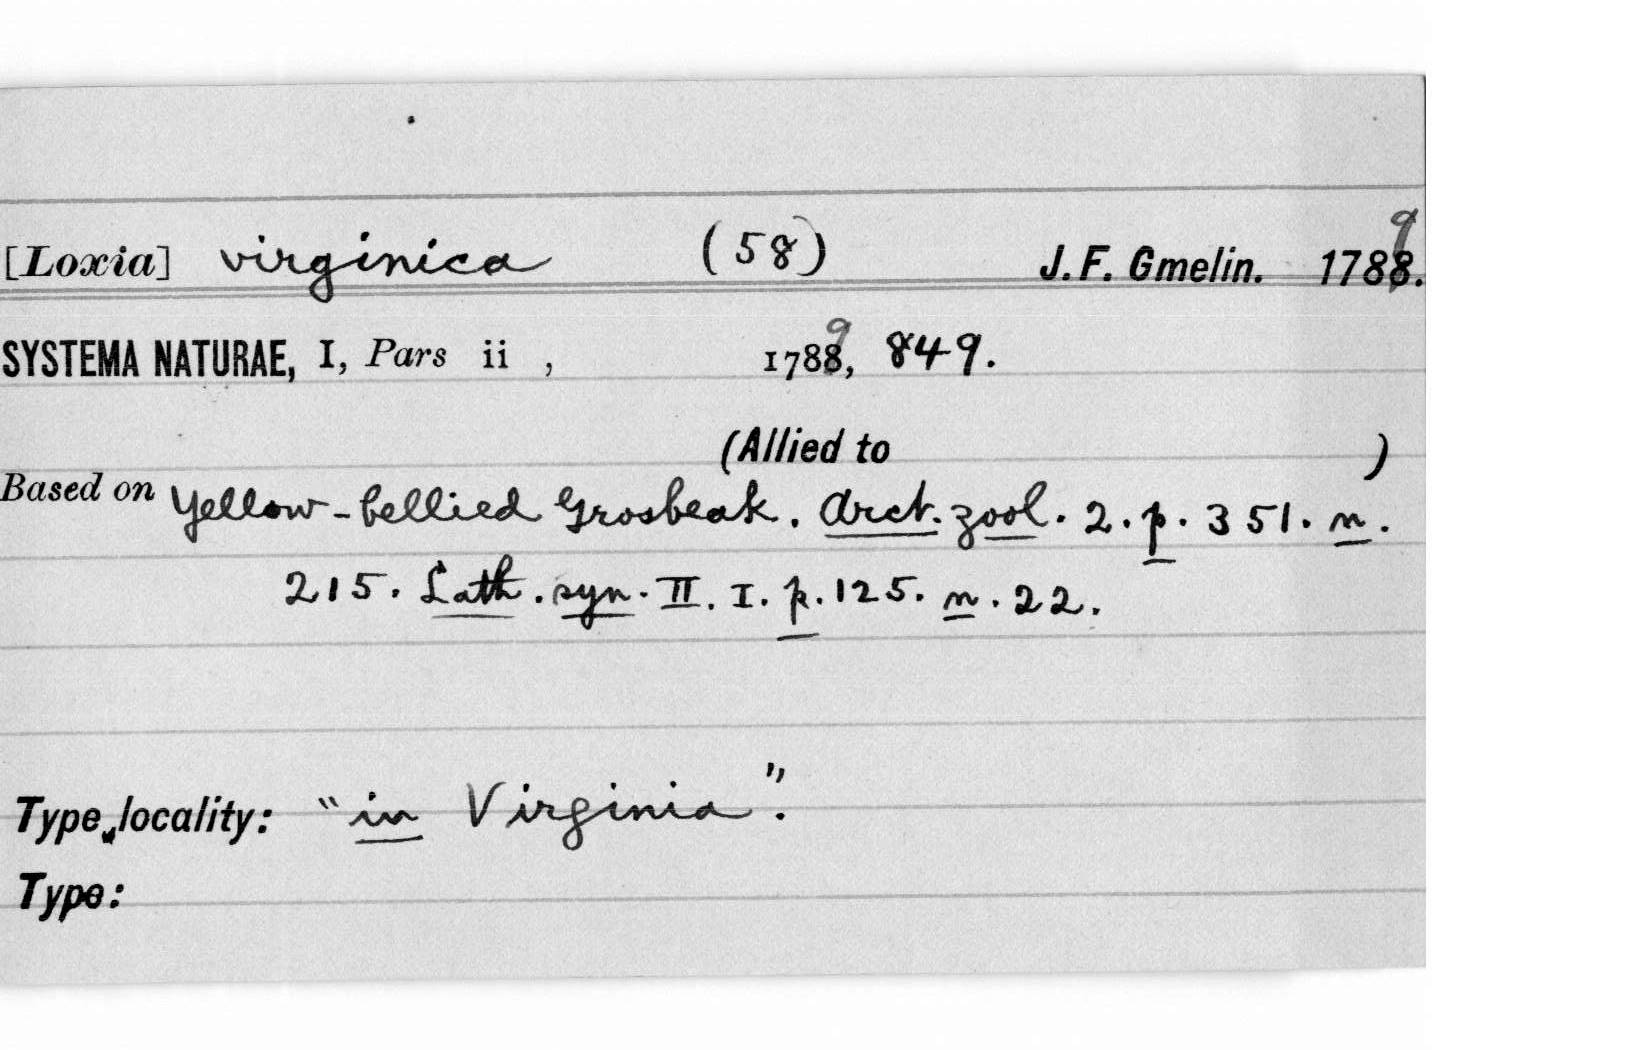 [Loxia] virginica (58) J. F. Gmelin. 1789.
SYSTEMA NATURAE, I, Pars ii , 1789, 849.
(Allied to )
Based on Yellow-bellied Grosbeak. Arct. zool. 2. p. 351. n.
215. Lath. syn. II. I. p. 125. n. 22.
Type locality: "in Virginia".
Type: